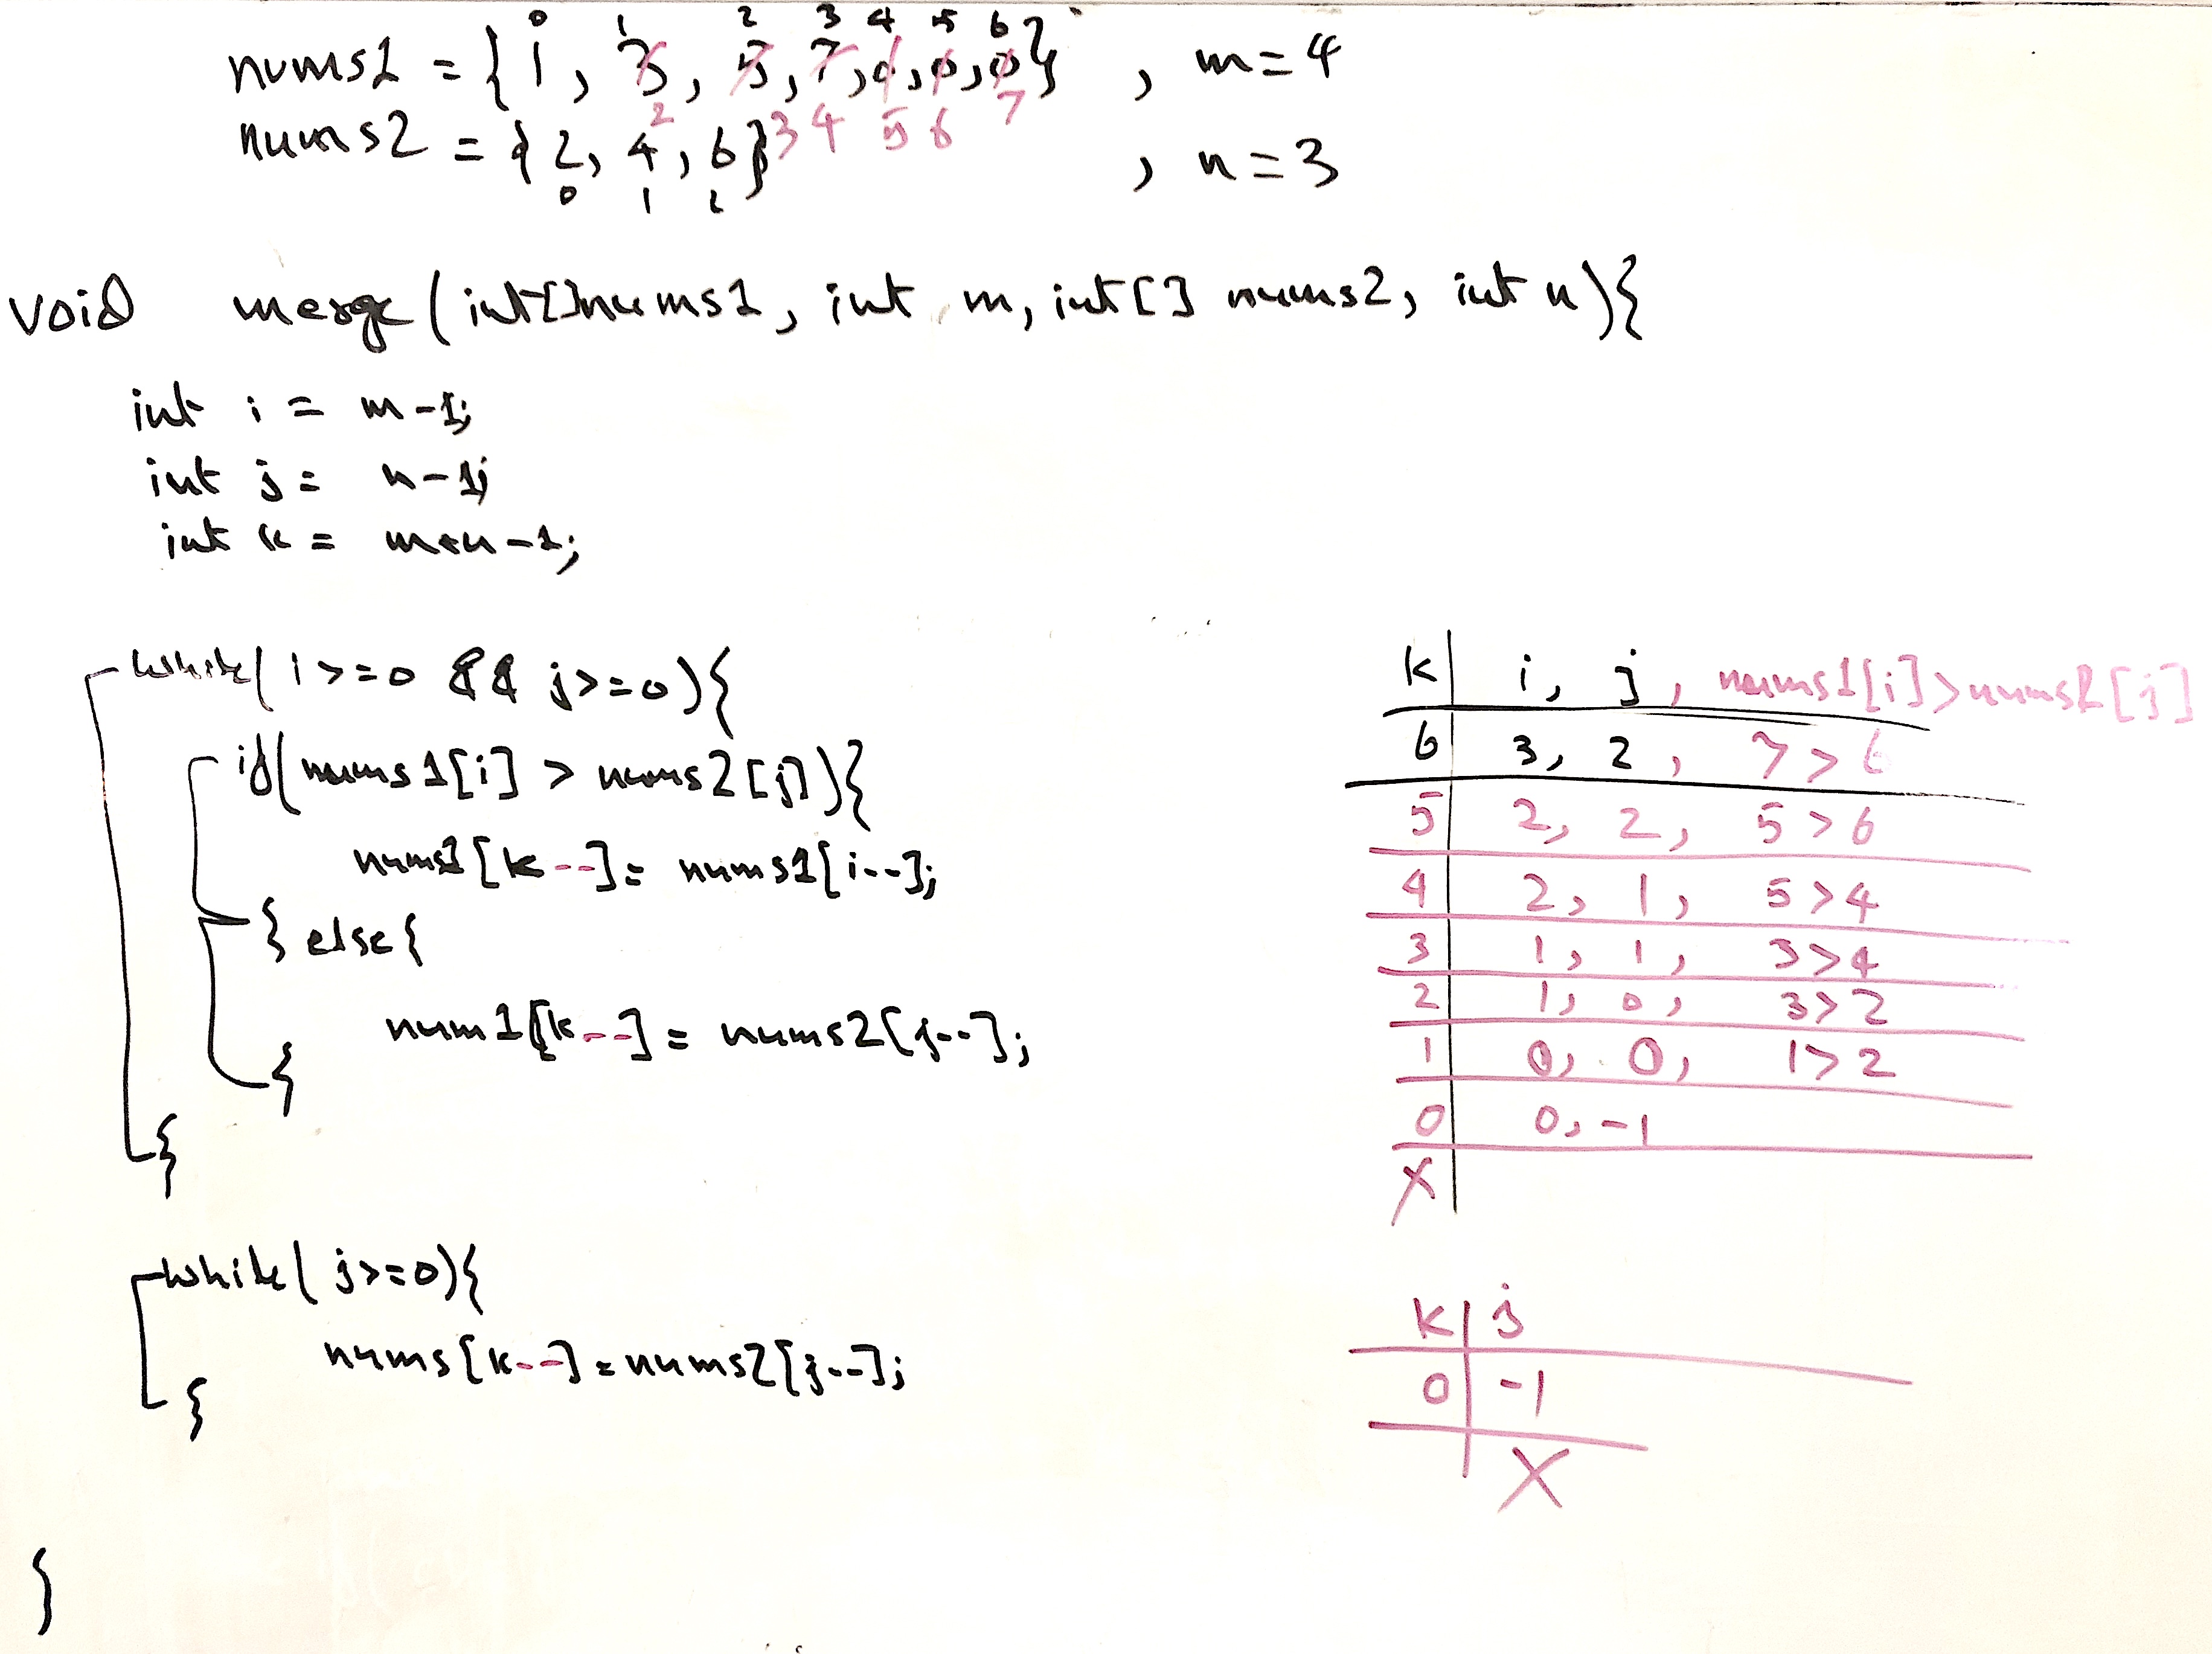 0 1 2 3 4 5 6
nums1 = {1, 3, 5, 7, 0, 0, 0} , m=4
2 3 4 5 6 7
nums2 = {2, 4, 6} , n=3
0 1 2
void merge(int[]nums1, int m, int[] nums2, int n){
int i = m-1;
int j = n-1;
int k = m+n-1;
while(i>=0 && j>=0){
if(nums1[i] > nums2[j]){
nums1[k--]= nums1[i--];
} else{
num1[k--] = nums2[j--];
}
}
while(j>=0){
nums[k--]=nums2[j--];
}
}
k i, j, nums1[i]>nums2[j]
6 3, 2, 7>6
5 2, 2, 5>6
4 2, 1, 5>4
3 1, 1, 3>4
2 1, 0, 3>2
1 0, 0, 1>2
0 0, -1
X
k j
0 -1
X